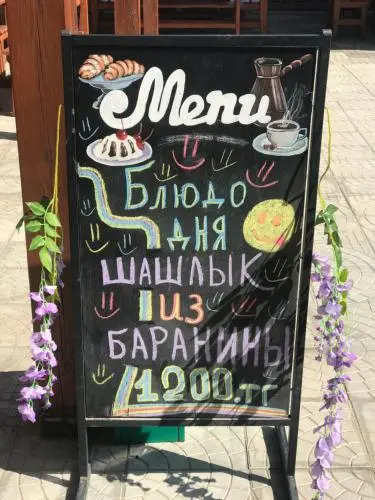 Menu
Блюдо
дня
шашлык
из
баранины
1200.тг